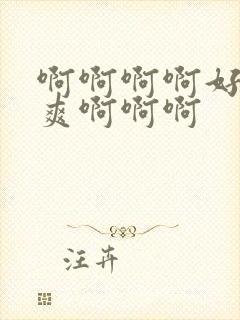 啊啊啊啊好
爽啊啊啊
汪卉